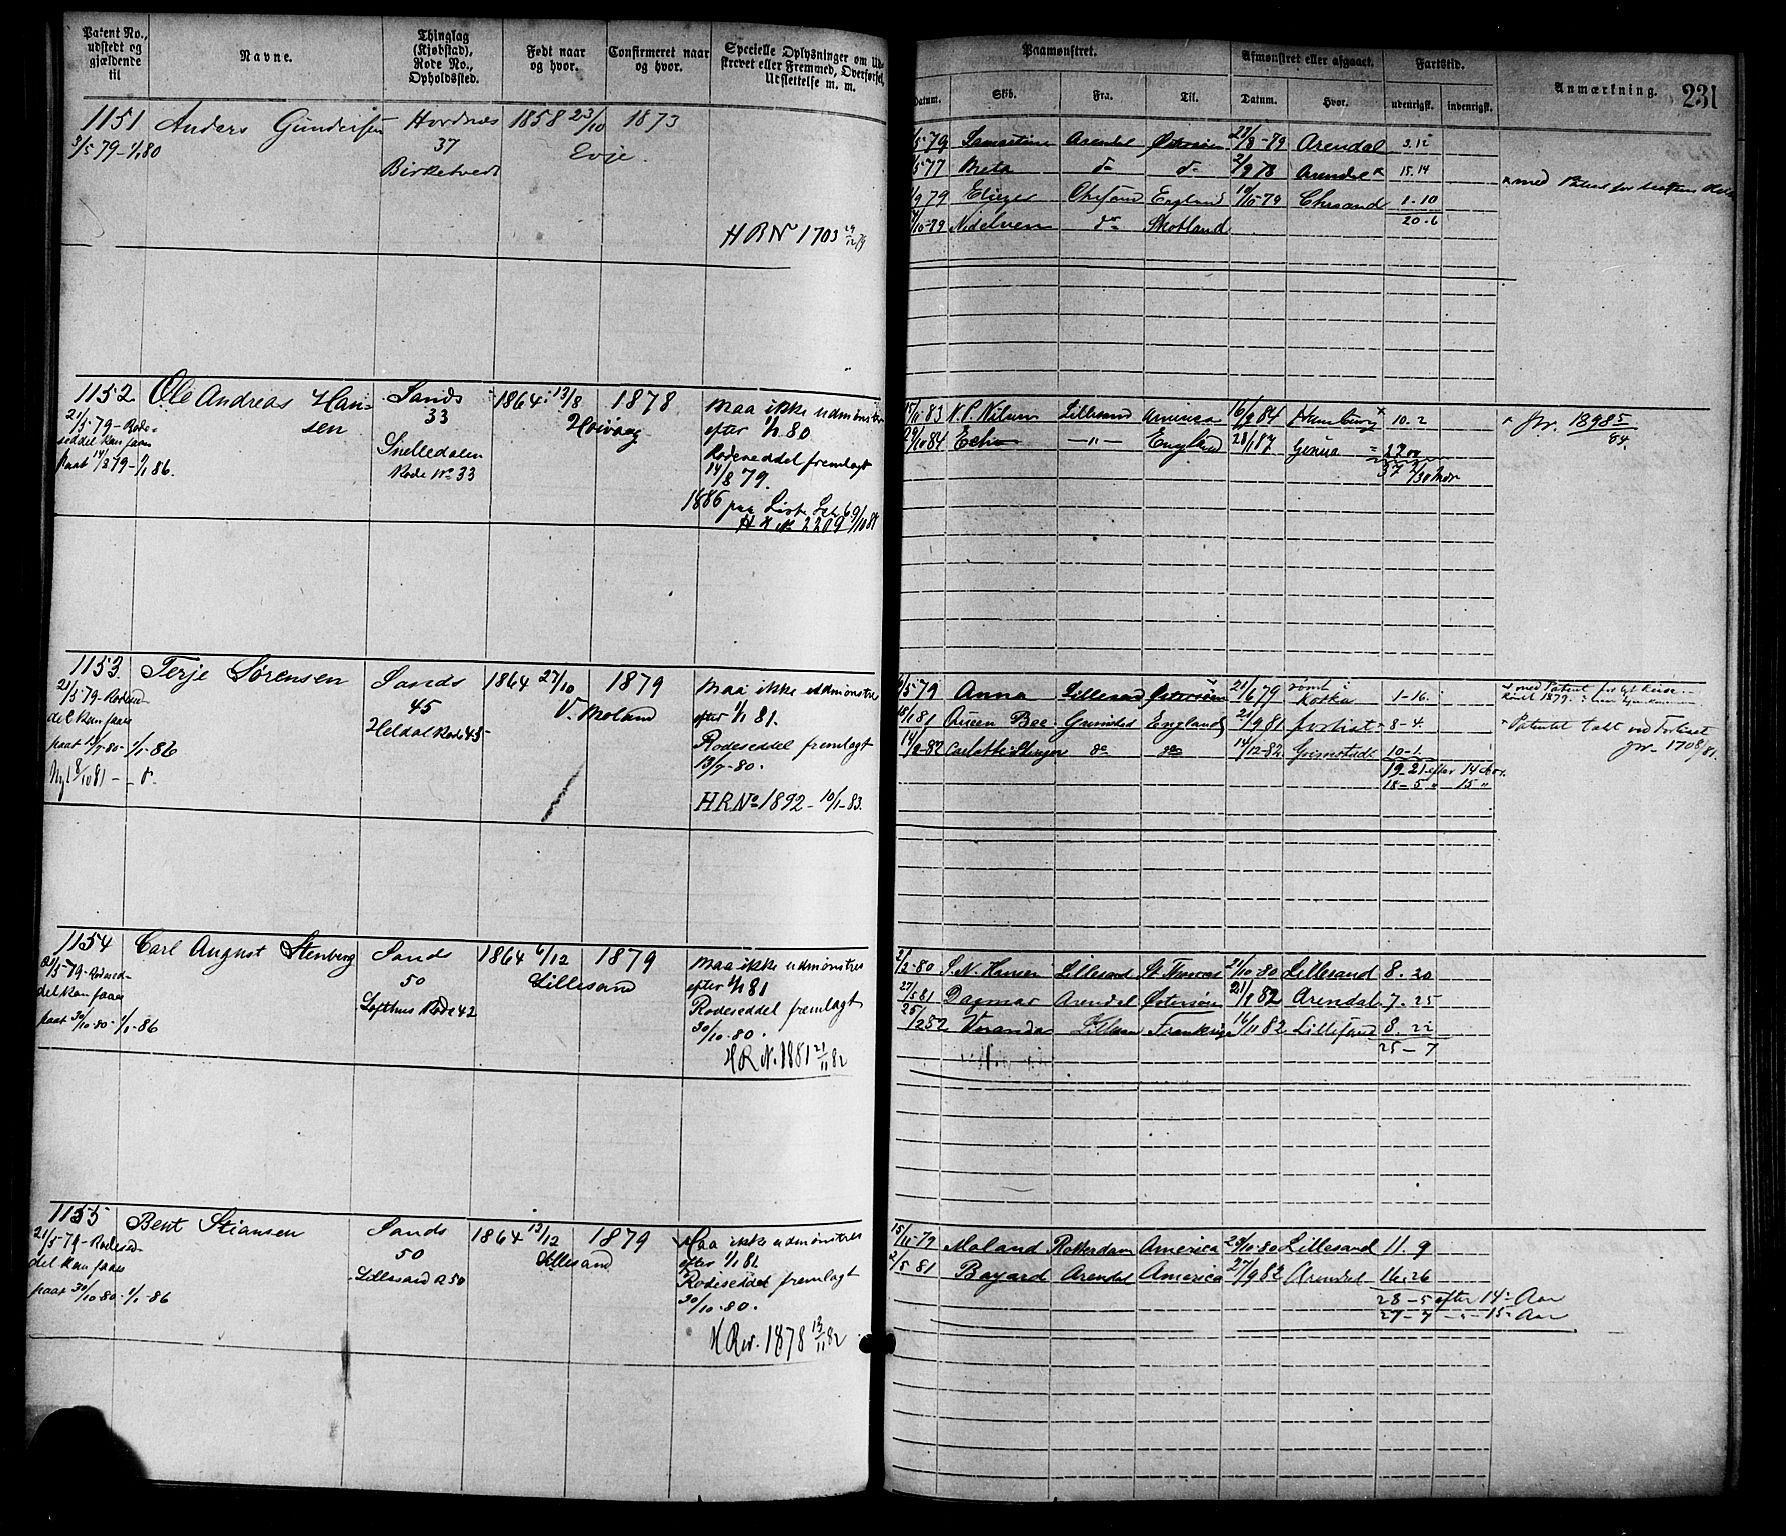 Patent No., udstedt og gjældende til
Navne.
Thinglag (Kjøbstad), Rode No., Opholdssted.
Født naar og hvor.
Confirmeret naar og hvor.
Specielle Oplysninger om Udskrevet eller Fremmed, Overførsel, Udslettelse m. m.
Paamønstret.
Datum. Skib. Fra. Til.
Afmønstret eller afgaaet.
Datum. Hvor.
Fartstid.
udenrigsk. indenrigsk.
Anmærkning.
231
1151 Anders Gundersen Hordnes 1858 23/10 1873
3/5 79 - 1/1 80 37 Evje
Birketvedt
HRN 1703 29/12 79
/5 79 Arendal Østersøen 27/8-79 Arendal 3.12
/5 77 Meta do do 2/9 78 Arendal x 15.14 x med Patent for
/9 79 Eliezer Chrsand England 19/10-79 Chrsand 1-10
/10-79 Nidelven do Skotland 20-6
1152 Ole Andreas Hansen Sands 1864 13/8 1878
21/5-79-Rodeseddel kan faaes paat 14/8 79-1/1 86.
33 Høivaag
Snelledalen
Rode No 33
maa ikke udmønstres
efter 1/1 80
Rodeseddel fremlagt
14/8 79.
1886 paa List
2209
15/11 83 N.P. Nilsen Lillesand America 16/9 84 x 10.2 x Jvr. 13985/84
29/10 84 Echo —"— England 28/1 87 Genua
1153 Terje Sørensen Sands 1864 27/10 1879
21/5-79-Rodeseddel kan faaes
45 V. Moland
Heldal Rode 45
paat 13/7-80-1/1-86
Nyt 8/10 81 - do
maa ikke udmønstres
efter 1/1 81.
Rodeseddel fremlagt
13/7-80.
HRNo 1892-10/1-83.
/5 79 Anna Lillesand Østersøen 21/6 79 rømt i Kotka 1-16.
18/1 81 Queen Bee Grimstad England 21/9 81 forlist 8-4. Patentet tabt ved Forliset
Jvr-1708/81.
14/2-82 do do 14/12-82 Grimstad 10-1.
19-21 efter 14 Aar.
18-5 " 15 "
1154 Carl August Stenberg Sands 1864 6/12 1879
21/5-79-Rodeseddel kan faaes
50 Lillesand
Lofthus Rode 42
paat 30/10-80-1/1-86
maa ikke udmønstres
efter 1/1 81
Rodeseddel fremlagt
30/10-80.
HRN.1881 21/11 82
2/2-80 S.N. Hansen Lillesand St. Thomas 21/10-80 Lillesand 8.20
27/5 81 Dagmar Arendal Østersøen 21/1 82 Arendal 7.25
25/2 82 Veranda Frankrige 16/11 82 Lillesand 8.22
25-7
1155 Bent Stiansen Sands 1864 13/12 1879
21/5-79-Rodeseddel kan faaes
50 Lillesand
Lillesand R 50
paat 30/10-80-1/1-86
Maa ikke udmønstres
efter 1/1 81
Rodeseddel fremlagt
30/10-80.
1878 13/11 82
15/11-79 Moland Rotterdam America 23/10-80 Lillesand 11.9
2/5 81 Bayard Arendal America 27/9 82 Arendal 16.26
28-5 efter 14 Aar
27-7 -"- 15 Aar